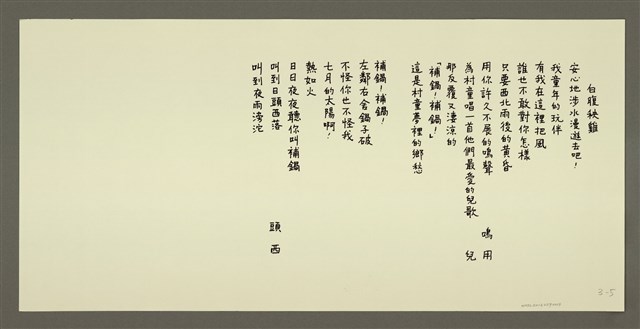 白腹秧雞
安心地涉水漫遊去吧！
我童年的玩伴
有我在這裡把風
誰也不敢對你怎樣
只要西北雨後的黃昏
用你許久不展的鳴聲
為村童唱一首他們最愛的兒歌
那反覆又淒涼的
「補鍋！補鍋！」
這是村童夢裡的鄉愁
補鍋！補鍋！
左鄰右舍鍋子破
不怪你也不怪我
七月的太陽啊！
熱如火
日日夜夜聽你叫補鍋
叫到日頭西落
叫到夜雨滂沱
用
鳴
兒
西
頭
3-5